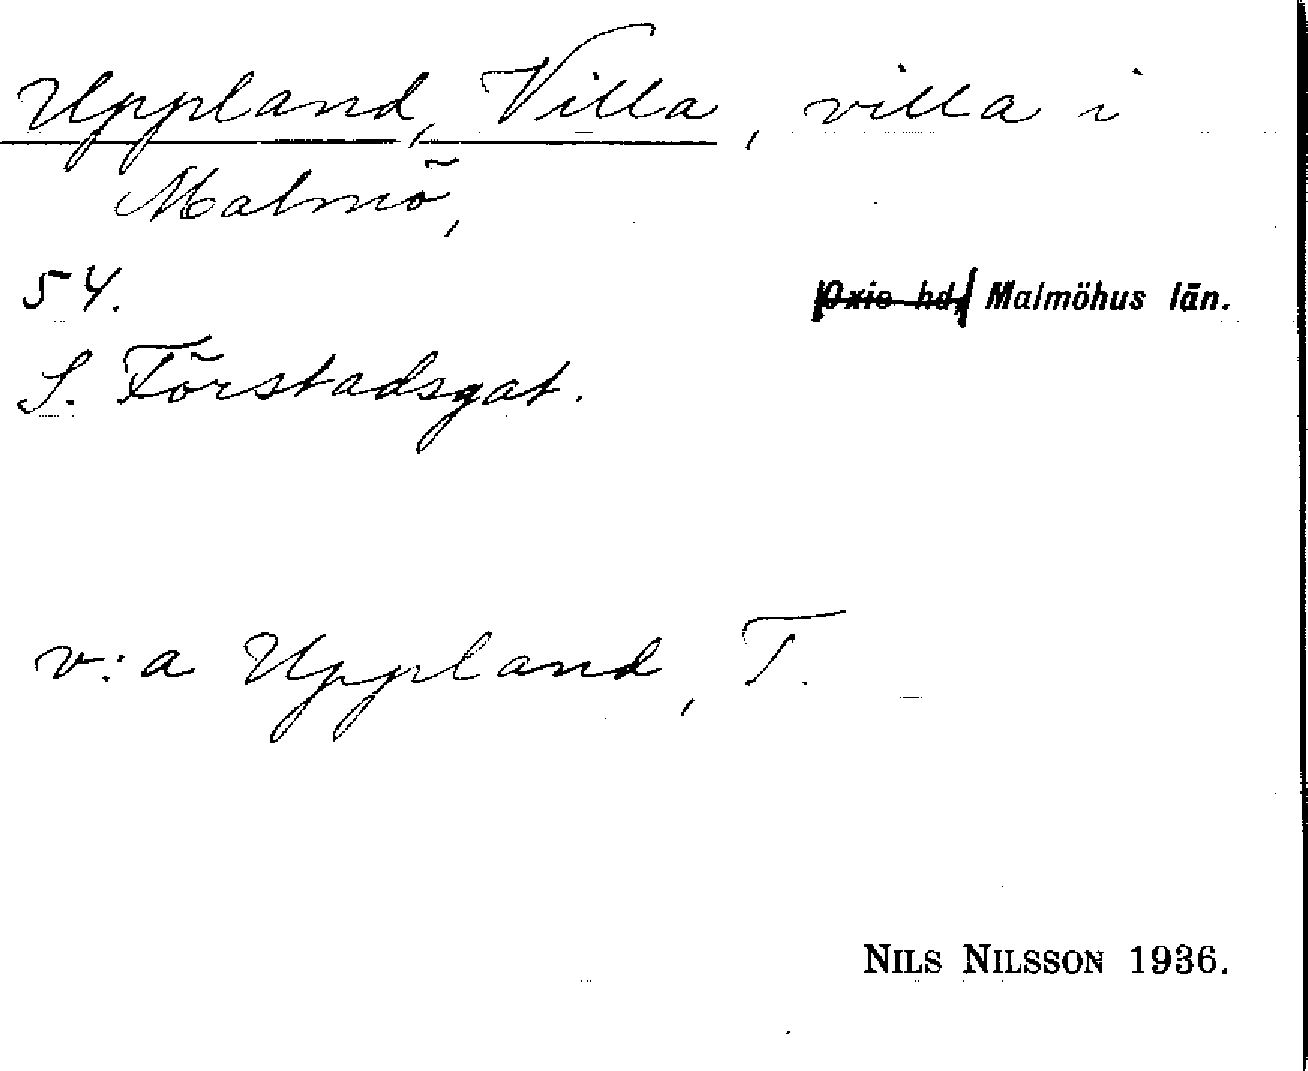 Uppland, Villa, villa i
Malmö,
54.
Oxie hd, Malmöhus län.
S. Förstadsgat.
v:a Uppland, T.
NILS NILSSON 1936.